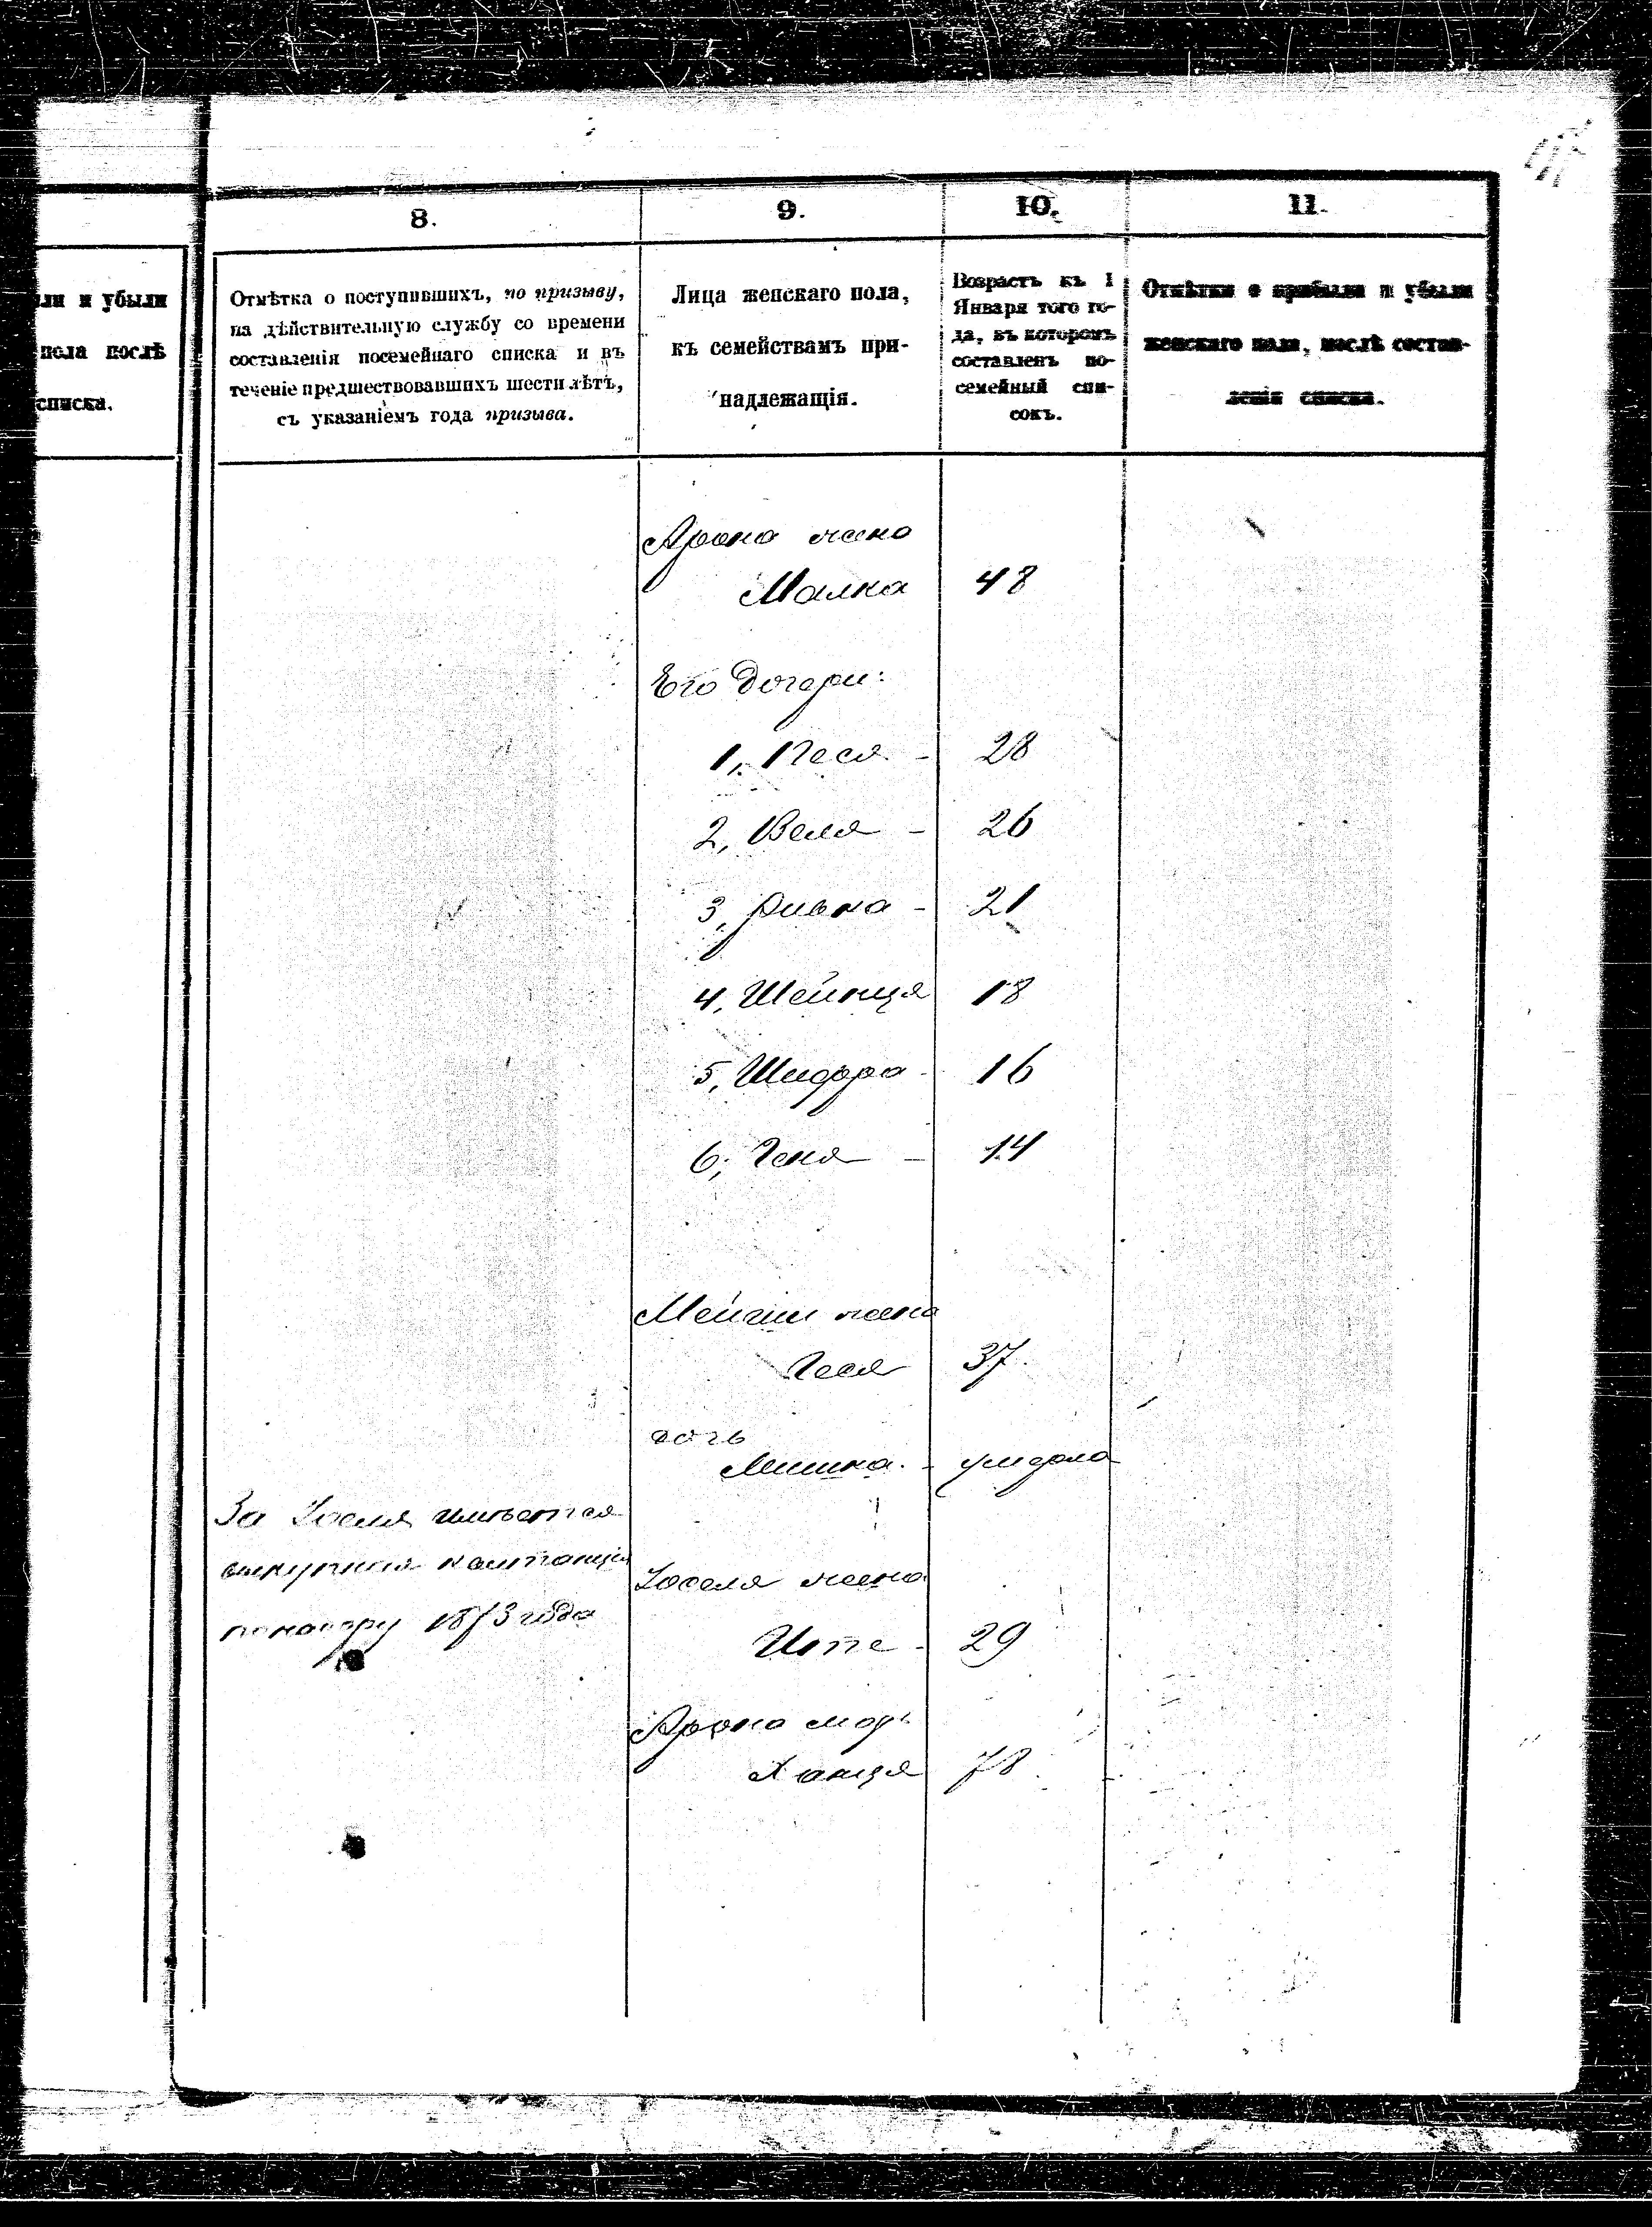 8.
9.
10.
11.
ли и убыли
пола послѣ
списка.
Отмѣтка о поступившихъ, по призыву,
на дѣйствительную службу со времени
составленія посемейнаго списка и въ
теченіе предшествовавшихъ шести лѣтъ,
съ указаніемъ года призыва.
Лица женскаго пола,
къ семействамъ при-
надлежащія.
Возрастъ къ 1
Января того го-
да, въ которомъ
составленъ по-
семейный спи-
сокъ.
Отмѣтки о прибыли и убыли
женскаго пола, послѣ состав-
ленія списка.
Арона жена
Малка 48
Его дочери:
1, Песя - 28
2, Веля - 26
3, Ривка - 21
4, Шейнця 18
5, Шифра - 16
6, Геня - 14
жена
Геся 37.
дочь
умерла
За Іоселя имѣется
выкупная квитанція
по набору 1873 года
Іоселя жена
Ите - 29
Арона мать
Ханця 78